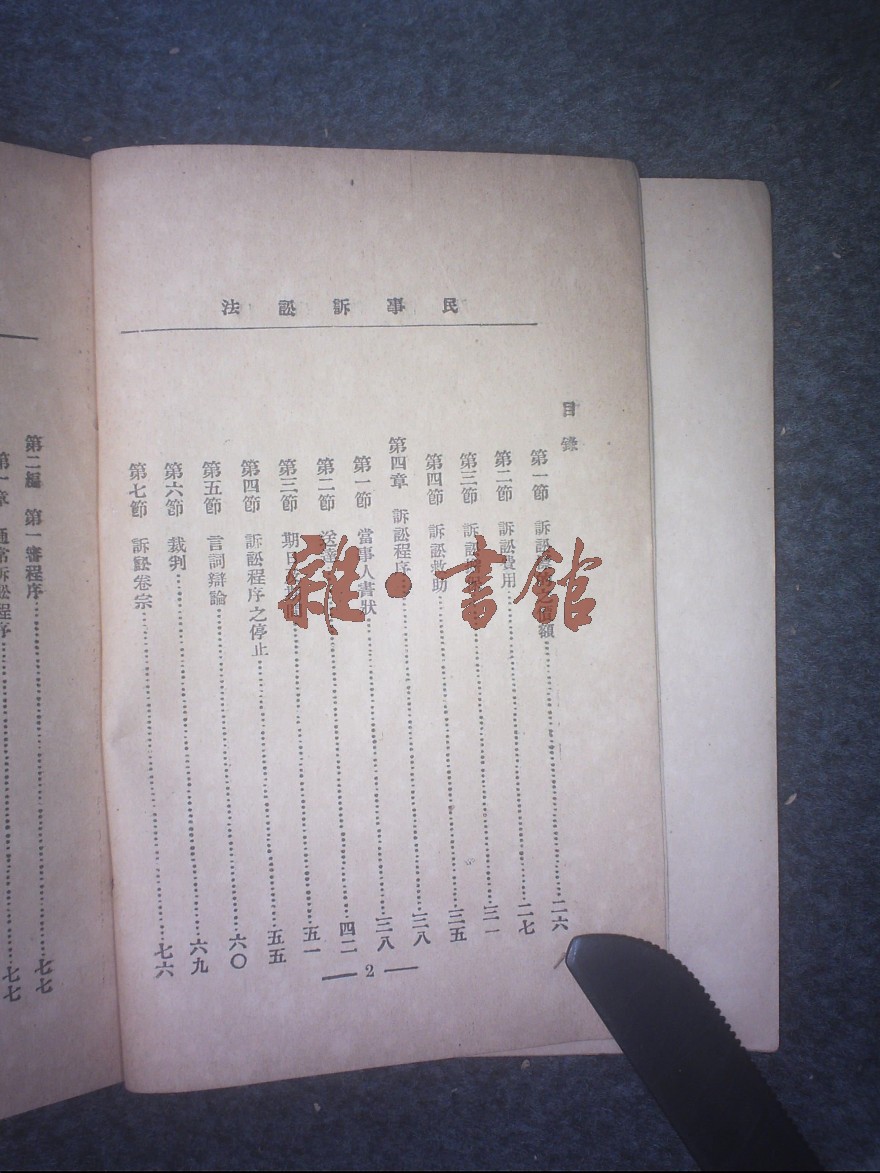 民事訴訟法
目錄
第一節 訴訟額……二六
第二節 訴訟費用……二七
第三節 訴訟……三一
第四節 訴訟救助……三五
第四章 訴訟程序……三八
第一節 當事人書狀……三八
第二節 送達……四二
第三節 期日……五一
第四節 訴訟程序之停止……五五
第五節 言詞辯論……六〇
第六節 裁判……六九
第七節 訴訟卷宗……七六
2
第二編 第一審程序……七七
第一章 通常訴訟程序……七七
雜·書館